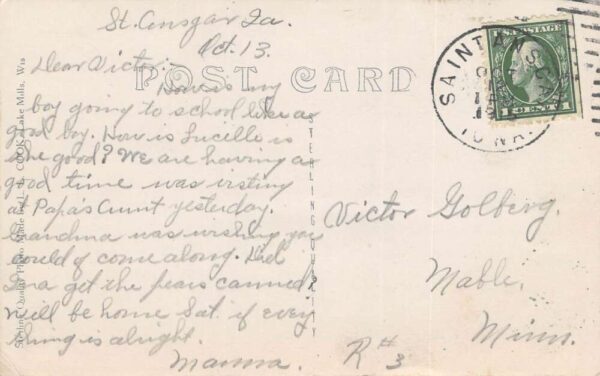 St. Ansgar Ia.
Oct. 13.
Dear Victor
POST CARD
How is my
boy going to school like a
good boy. How is Lucille is
she good? We are having a
good time was visting
at Papa's Aunt yesterday.
Grandma was wishing you
could of come along. Did
Ina get the pears canned
will be home Sat. if every
thing is alright.
Mamma.
Victor Golberg.
Mable,
Minn.
R#3
STERLING QUALITY
Made by COOK, Lake Mills, Wis
SAINT ANSGAR
OCT
IOWA.
U.S. POSTAGE
1 CENT 1